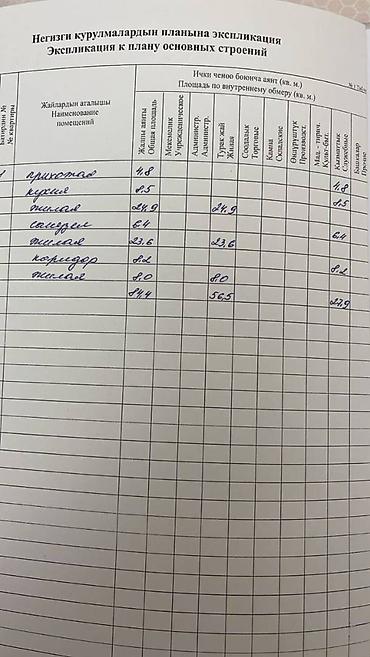 Негизги курулмалардын планына экспликация
Экспликация к плану основных строений
Ички ченөө боюнча аянт (кв. м.)
Площадь по внутреннему обмеру (кв. м.)
№ квартиры
Жайлардын аталышы
Наименование
помещений
Жалпы аянты
Общая площадь
Мекемелик
Учрежденческое
Администр.
Администр.
Турак жай
Жилая
Соодалык
Торговые
Кампа
Складские
Өндүрүштүк
Производст.
Мад. - тирич.
Культ-быт.
Кызматтык
Служебные
Башкалар
Прочие
1 прихожая 4,8 4,8
кухня 8.5 8.5
жилая 24,9 24,9
санузел 6.4 6.4
жилая 23.6 23,6
коридор 8.2 8.2
жилая 8.0 8.0
84,4 56.5 27,9